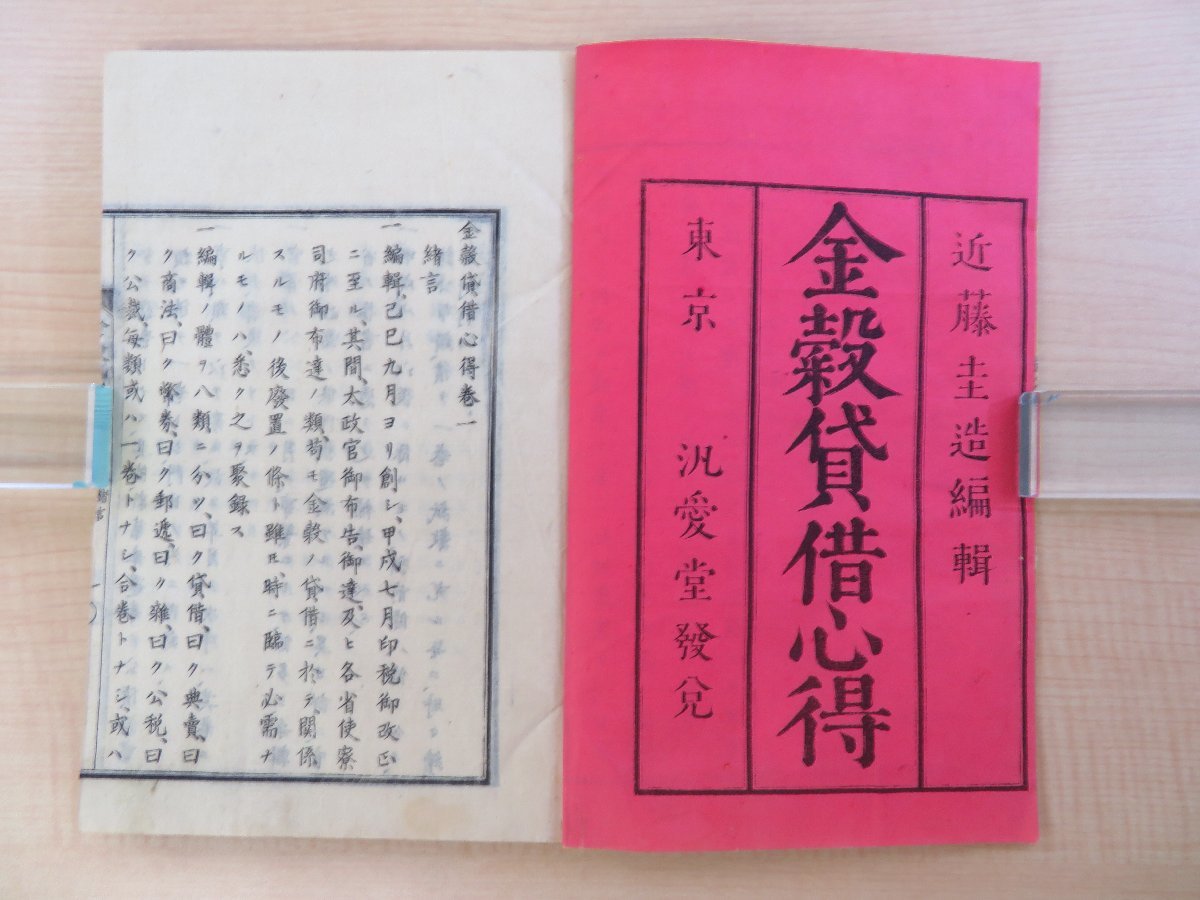 近藤圭造編輯
金穀貸借心得
東京 汎愛堂發兌
金穀貸借心得卷一
緒言
一編輯、己巳九月ヨリ創シ、甲戌七月印税御改正
ニ至ル、其間、太政官御布告、御達、及ヒ各省使寮
司府御布達ノ類、苟モ金穀ノ貸借ニ於テ、關係
スルモノ後廢置ノ條ト雖𪜈、時ニ臨テ必需ナ
ルモノハ、悉ク之ヲ聚録ス
一編輯ノ體ヲ八類ニ分ツ、曰ク貸借、曰ク典賣、曰
ク商法、曰ク券、曰ク郵遞、曰ク雜、曰ク公税、曰
ク公裁、每類或ハ一卷トナシ、合卷トナシ、或ハ
緒言
一